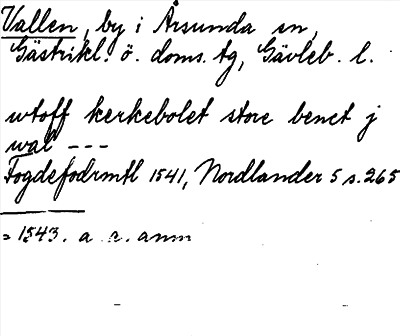 Vallen, by i Årsunda sn,
Gästrikl. ö. doms. tg, Gävleb. l.
wtoff kerkebolet store benct j
wal ---
Fogdefodrmtl 1541, Nordlander 5 s. 265
= 1543. a. a. anm